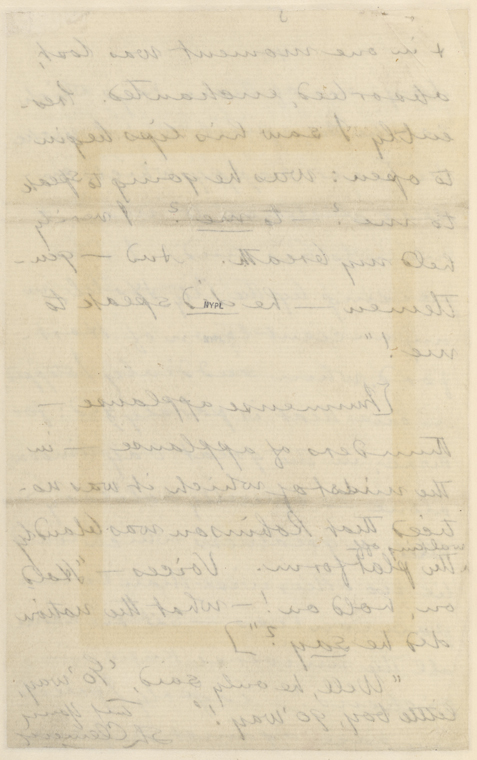 & in one moment was lost,
absorbed, enchanted. Pres-
ently I saw his lips begin
to open: was he going to speak
to me? — to me? I verily
held my breath. And — gen-
tlemen — he did speak to
me!"
[Immense applause —
thunders of applause — in
the midst of which it was no-
ticed that Robinson was blandly
walking off
the platform. Voices — "Hold
on, hold on! — what the nation
did he say?"]
"Well, he only said, 'Go 'way,
little boy, go 'way!'"
NYPL